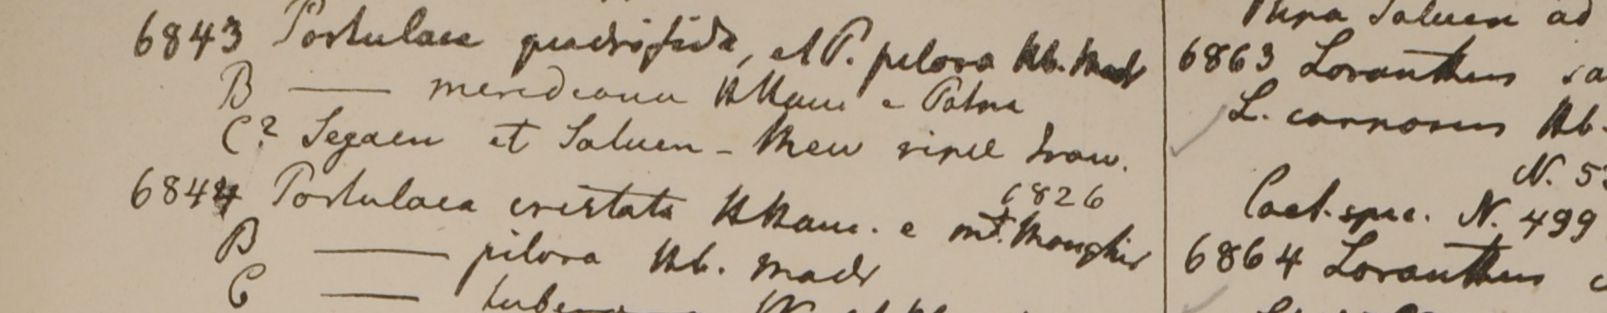 6843 Portulaca quadrifida, et P. pilosa Hb. Madr
B —— meredeana HHam e Patna
C? Segaen et Saluen - Prew ripae Iraw.
6844 Portulaca cristata HHam. e mt. Monghir
1826
B —— pilosa Hb. Madr
C —— tuber
ad
6863 Loranthus
L. carnosus Hb.
N. 53
Cael. spec. N. 499
6864 Loranthus